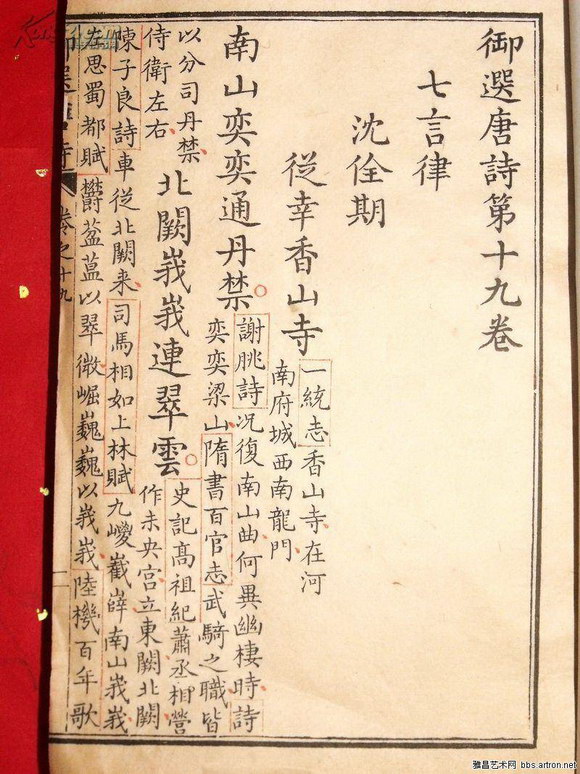 御選唐詩第十九卷
七言律
沈佺期
從幸香山寺
一統志香山寺在河
南府城西南龍門
南山奕奕通丹禁
謝朓詩况復南山曲何異幽棲時詩
奕奕梁山隋書百官志武騎之職皆
以分司丹禁
侍衛左右
北闕峩峩連翠雲
史記高祖紀蕭丞相營
作未央宮立東闕北闕
陳子良詩車從北闕来司馬相如上林賦九嵕嶻嶭南山峩峩
左思蜀都賦欝葐蒕以翠微崛巍巍以峩峩陸機百年歌
卷之十九
雅昌艺术网 bbs.artron.net